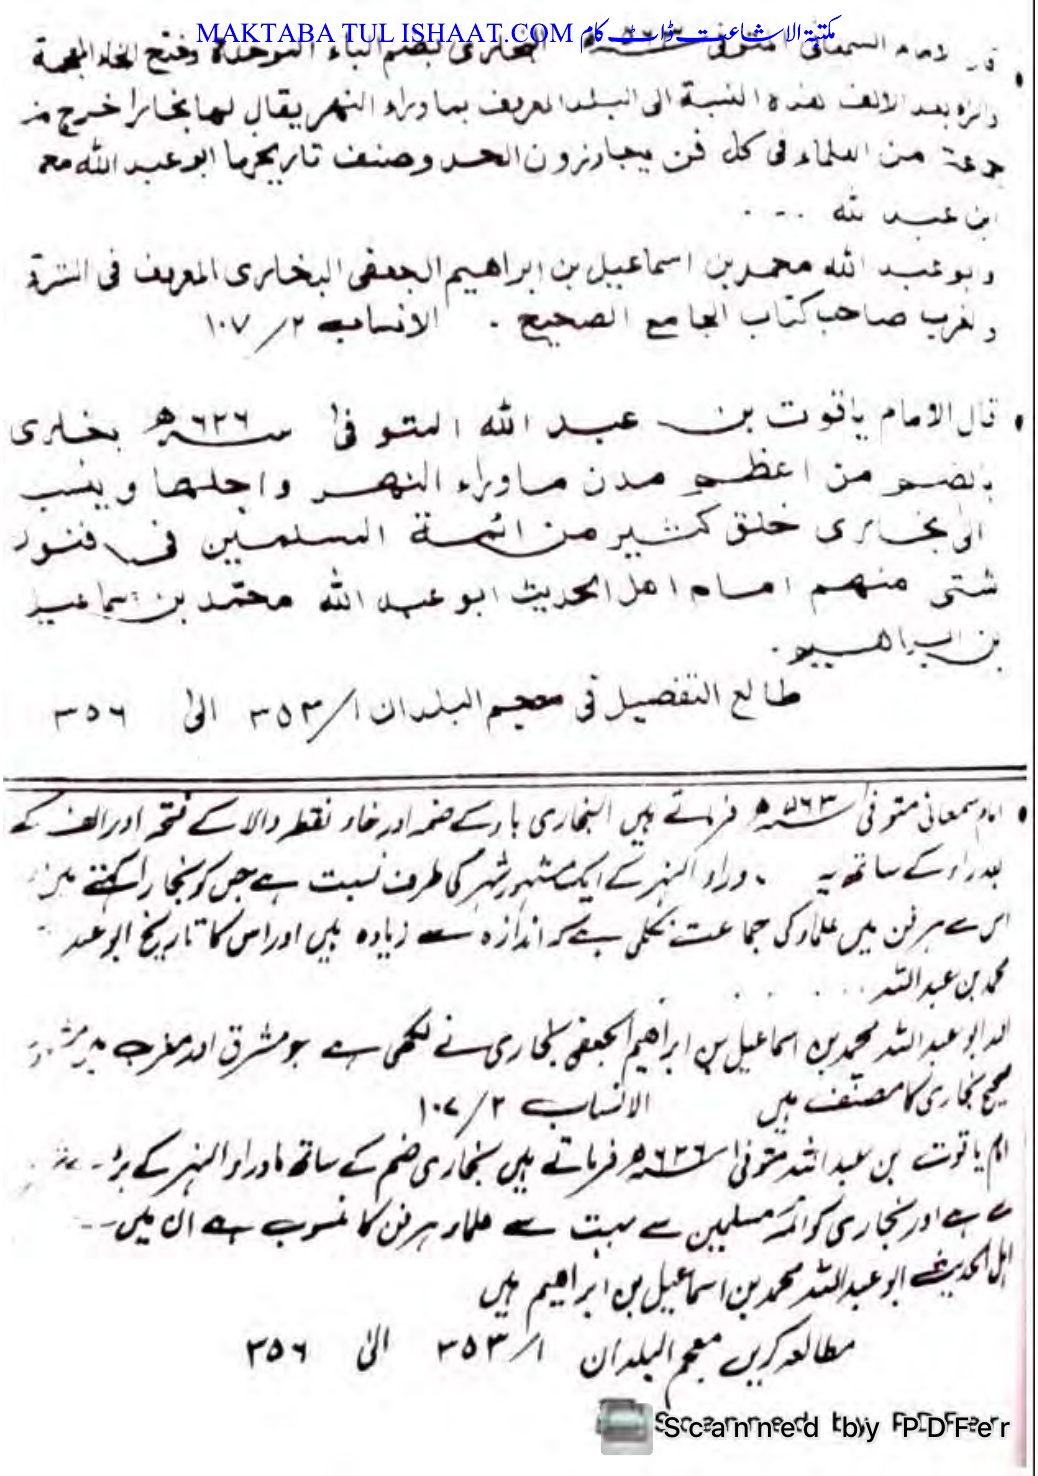 MAKTABA TUL ISHAAT.COM مکتبۃ الاشاعت ڈاٹ کام
قال الامام السمعانی متوفی ۵۶۳ھ البخاری بضم الباء الموحدة وفتح الخاء المعجمة
والراء بعد الالف هذه النسبة الى البلد المعروف بما وراء النهر يقال لها بخارا خرج منها
جماعة من العلماء فى كل فن يجاوزون الحد وصنف تاريخها ابو عبد الله محمد
ابن عبد الله ...
وابو عبد الله محمد بن اسماعيل بن ابراهيم الجعفى البخارى المعروف فى الشرق
والغرب صاحب كتاب الجامع الصحيح . الانساب ۲/۱۰۷
قال الامام ياقوت بن عبد الله المتوفىٰ ۶۲۶ھ بخارى
بالضم من اعظم مدن ماوراء النهر واجلها وينسب
الى بخارى خلق كثير من ائمة المسلمين فى فنون
شتى منهم امام اهل الحديث ابو عبد الله محمد بن اسماعيل
بن ابراهيم .
طالع التفصيل فى معجم البلدان ۱/۳۵۳ الىٰ ۳۵۶
امام سمعانی متوفی ۵۶۳ھ فرماتے ہیں البخاری باء کے ضمہ اور خاء نقطہ والا کے فتحہ اور الف کے
بعد راء کے ساتھ یہ ماوراء النہر کے ایک مشہور شہر کی طرف نسبت ہے جس کو بخارا کہتے ہیں
اس سے ہر فن میں علماء کی جماعت نکلی ہے کہ اندازہ سے زیادہ ہیں اور اس کا تاریخ ابو عبد
محمد بن عبد اللہ ....
اور ابو عبد اللہ محمد بن اسماعیل بن ابراہیم الجعفی بخاری نے لکھی ہے جو مشرق اور مغرب میں
صحیح بخاری کا مصنف ہیں الانساب ۲/۱۰۷
امام یاقوت بن عبد اللہ متوفیٰ ۶۲۶ھ فرماتے ہیں بخاری ضم کے ساتھ ماوراء النہر کے بڑے
سے ہے اور بخاری کو ائمہ مسلمین سے بہت سے علماء ہر فن کا منسوب ہے ان میں
اہل الحدیث ابو عبد اللہ محمد بن اسماعیل بن ابراہیم ہیں
مطالعہ کریں معجم البلدان ۱/۳۵۳ الیٰ ۳۵۶
Scanned by PDFer